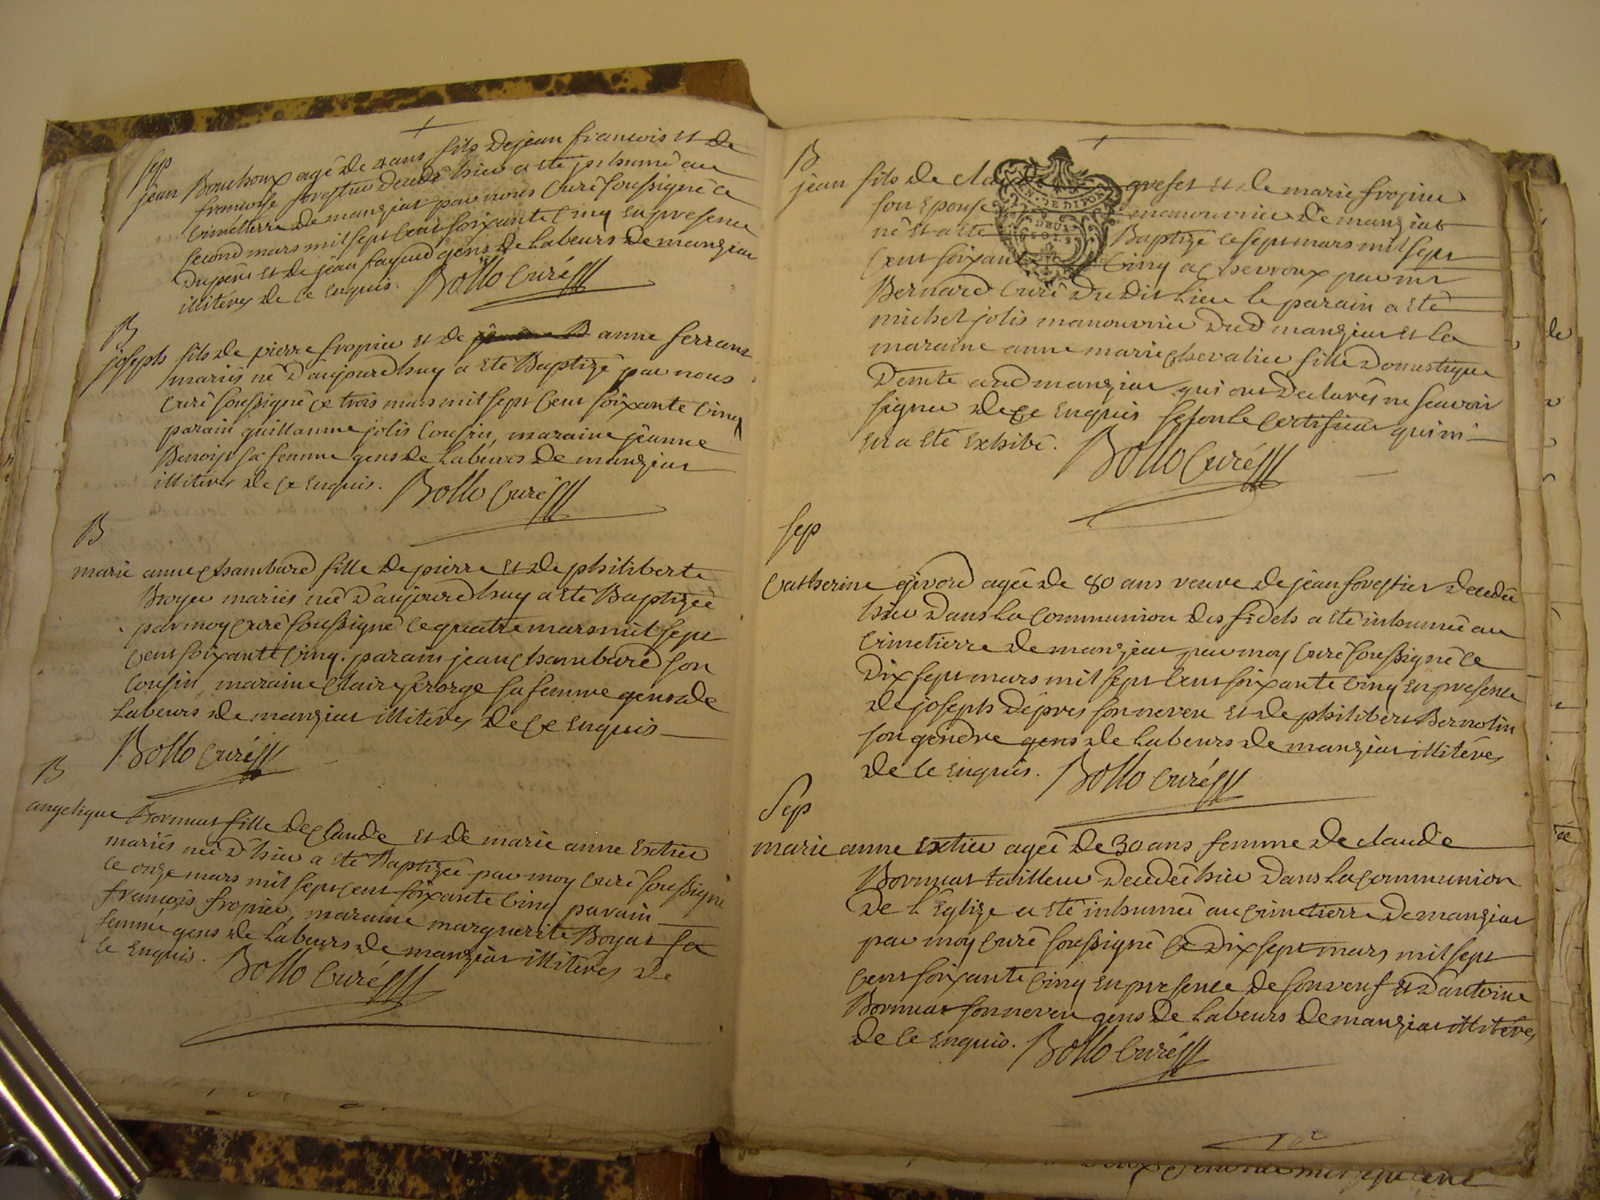 Sep
jean Bouchoux agé de 2 ans fils De jean francois et de
francoise forestier decedé hier a eté inhumé au
Cimetierre de manziat par nous Curé soussigné ce
second mars mil sept Cent soixante Cinq en presence
Du pere et de jean gens de Labeurs de manziat
illiteres de ce Enquis. Bollo Curé
B
joseph fils de pierre fropier et de anne ferrant
mariés né D'aujourd'huy a eté Baptizé par nous
Curé soussigné ce trois mars mil sept Cent soixante Cinq
parain guillaume jolis Cousin, maraine jeanne
Benoist sa femme gens de Labeurs de manziat
illiteres de ce Enquis. Bollo Curé
B
marie anne Chambard fille de pierre et de philiberte
Broyer mariés née D'aujourd'huy a eté Baptizée
par moy Curé soussigné ce quatre mars mil sept
Cent soixante Cinq. parain jean Chambard son
Cousin, maraine Claire sa femme gens de
Labeurs de manziat illiteres de ce Enquis
Bollo Curé
B
angelique Bornuat fille de Claude et de marie anne Extier
mariés née D'hier a eté Baptizée par moy Curé soussigné
ce onze mars mil sept Cent soixante Cinq parain
francois fropier, maraine marguerite Boyat sa
femme gens de Labeurs de manziat illiteres de
ce Enquis. Bollo Curé
B
jean fils de greset et de marie fropier
son Epouse manouvrier de manziat
né et a eté Baptizé ce sept mars mil sept
Cent soixante Cinq a Chevroux par mr
Bernard Curé Du Dit Lieu le parain a eté
michel jolis manouvrier Dud manziat et la
maraine anne marie Chevalier fille Domestique
aud manziat qui ont Declarés ne scavoir
signer de ce Enquis selon le Certificat qui m'
en a eté Exhibé. Bollo Curé
Sep
Catherine givord agée de 80 ans veuve de jean forestier decedée
hier dans la Communion des fidels a eté inhumée au
Cimetierre de manziat par moy Curé soussigné ce
Dix sept mars mil sept Cent soixante Cinq en presence
de joseph Dépres son neveu et de philibert Bernolin
son gendre gens de Labeurs de manziat illiteres
de ce Enquis. Bollo Curé
Sep
marie anne Extier agée de 30 ans femme de claude
Bornuat tailleur decedée hier dans la Communion
de l'Eglize a eté inhumée au Cimetierre de manziat
par moy Curé soussigné ce Dix sept mars mil sept
Cent soixante Cinq en presence de son veuf et d'antoine
Bornuat son neveu gens de Labeurs de manziat illiteres
de ce Enquis. Bollo Curé